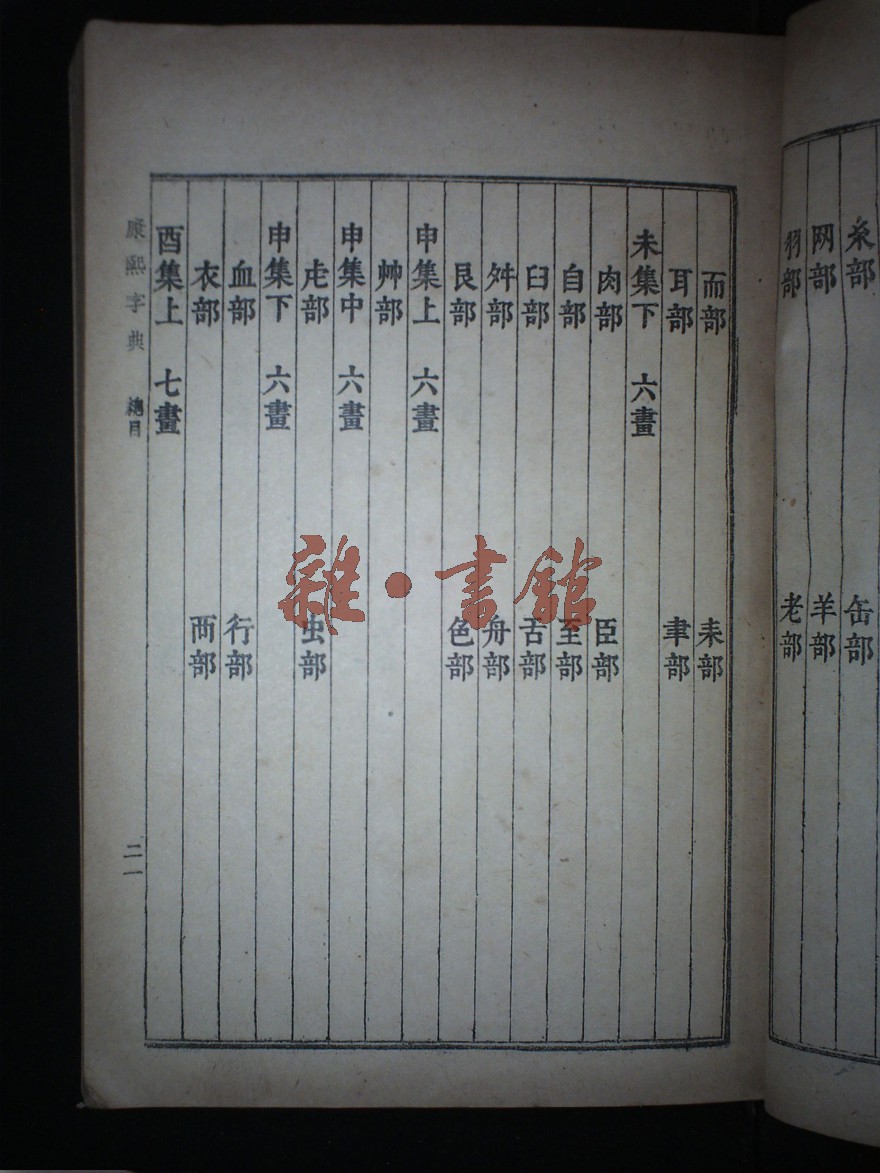 糸部 缶部
网部 羊部
羽部 老部
而部 耒部
耳部 聿部
未集下 六畫
肉部 臣部
自部 至部
臼部 舌部
舛部 舟部
艮部 色部
申集上 六畫
艸部
申集中 六畫
虍部 虫部
申集下 六畫
血部 行部
衣部 襾部
酉集上 七畫
康熙字典 總目
二一
雜·書館